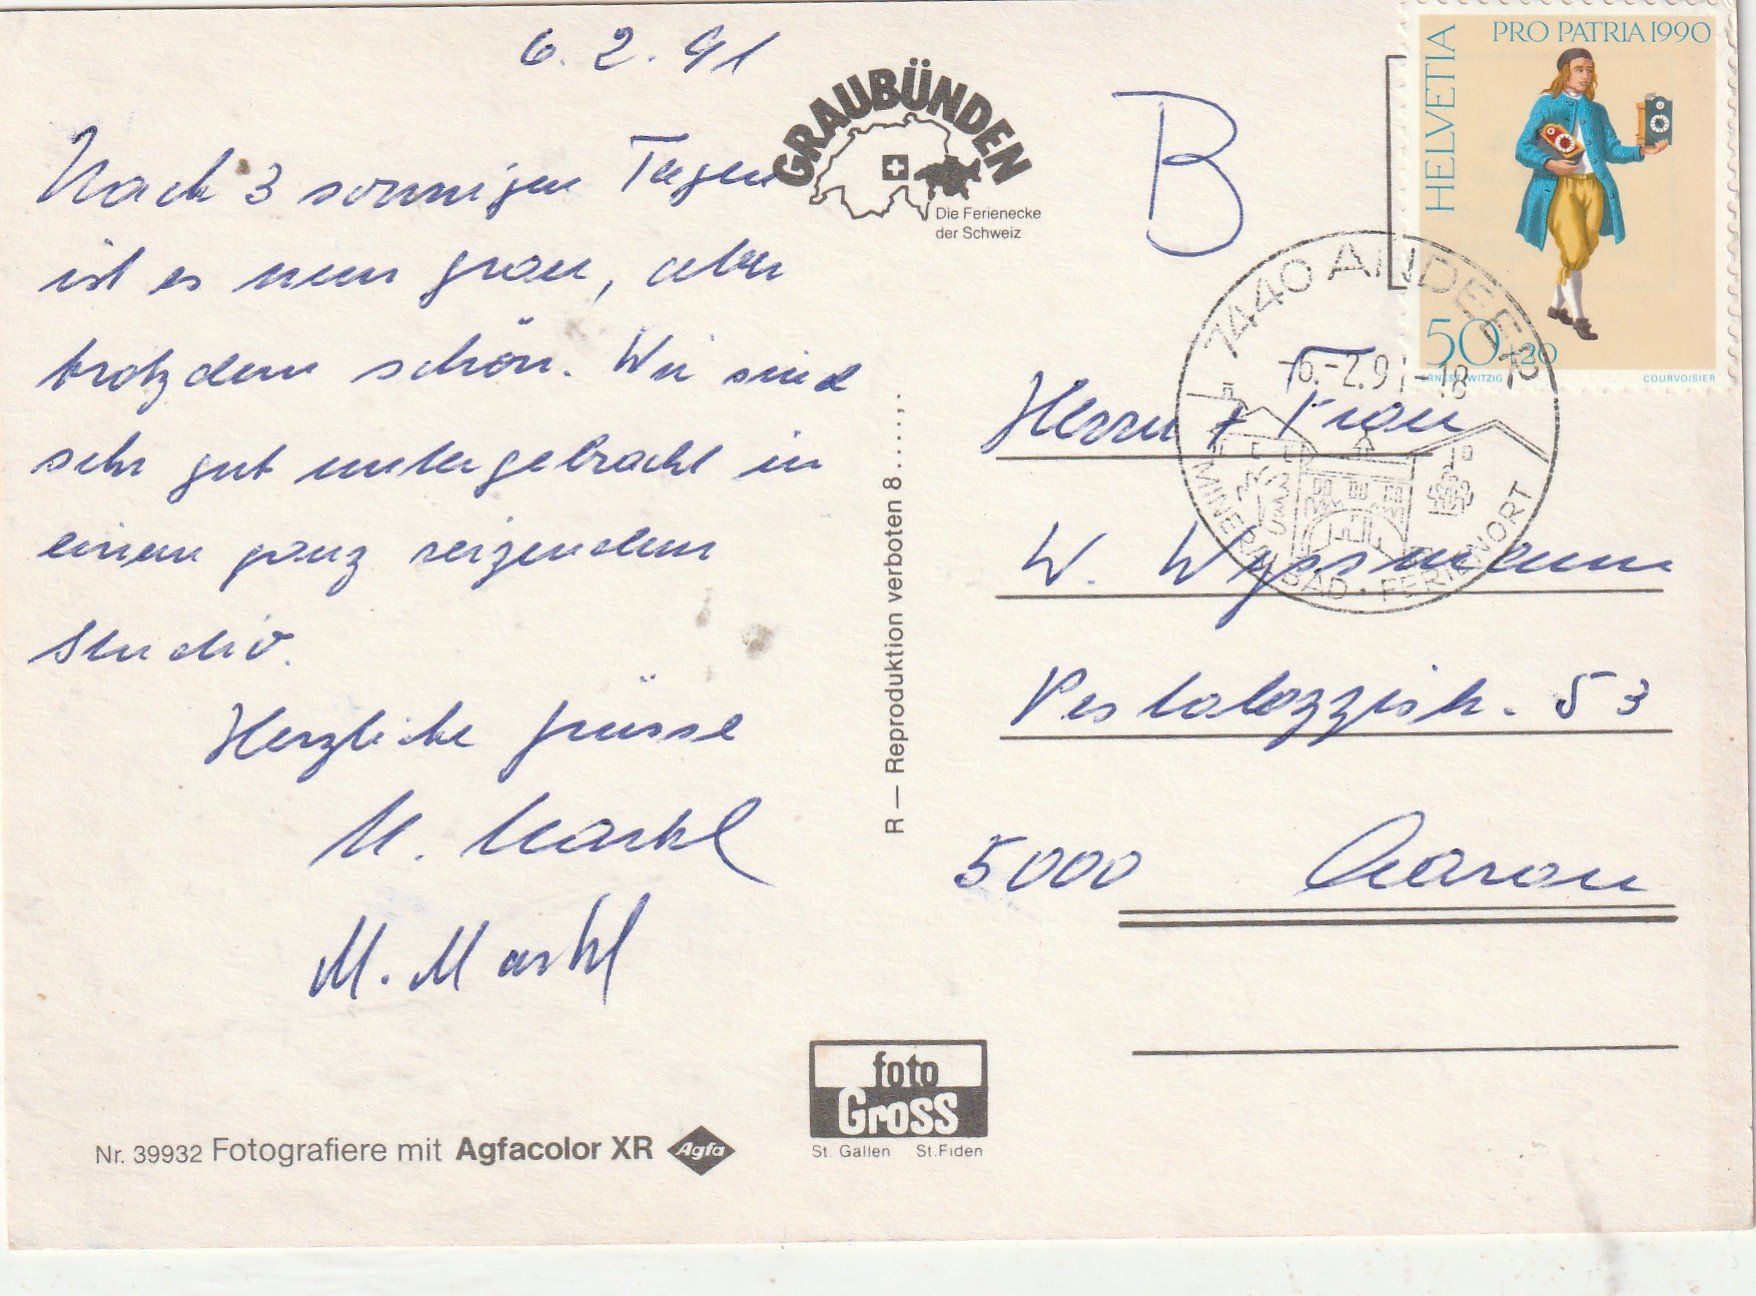 6. 2. 91
Nach 3 sonnigen Tagen
ist es nun grau, aber
trotzdem schön. Wir sind
sehr gut untergebracht in
einem ganz reizenden
Studio.
Herzliche Grüsse
M. Markl
GRAUBÜNDEN
Die Ferienecke
der Schweiz
R — Reproduktion verboten 8......
Nr. 39932 Fotografiere mit Agfacolor XR Agfa
foto
Gross
St. Gallen St.Fiden
B
HELVETIA
PRO PATRIA 1990
50+20
ERNST WITZIG COURVOISIER
7440 ANDEER
-6.-2.91-18
MINERALBAD · FERIENORT
Herrn + Frau
W. Wyssmann
Pestalozzistr. 53
5000 Aarau